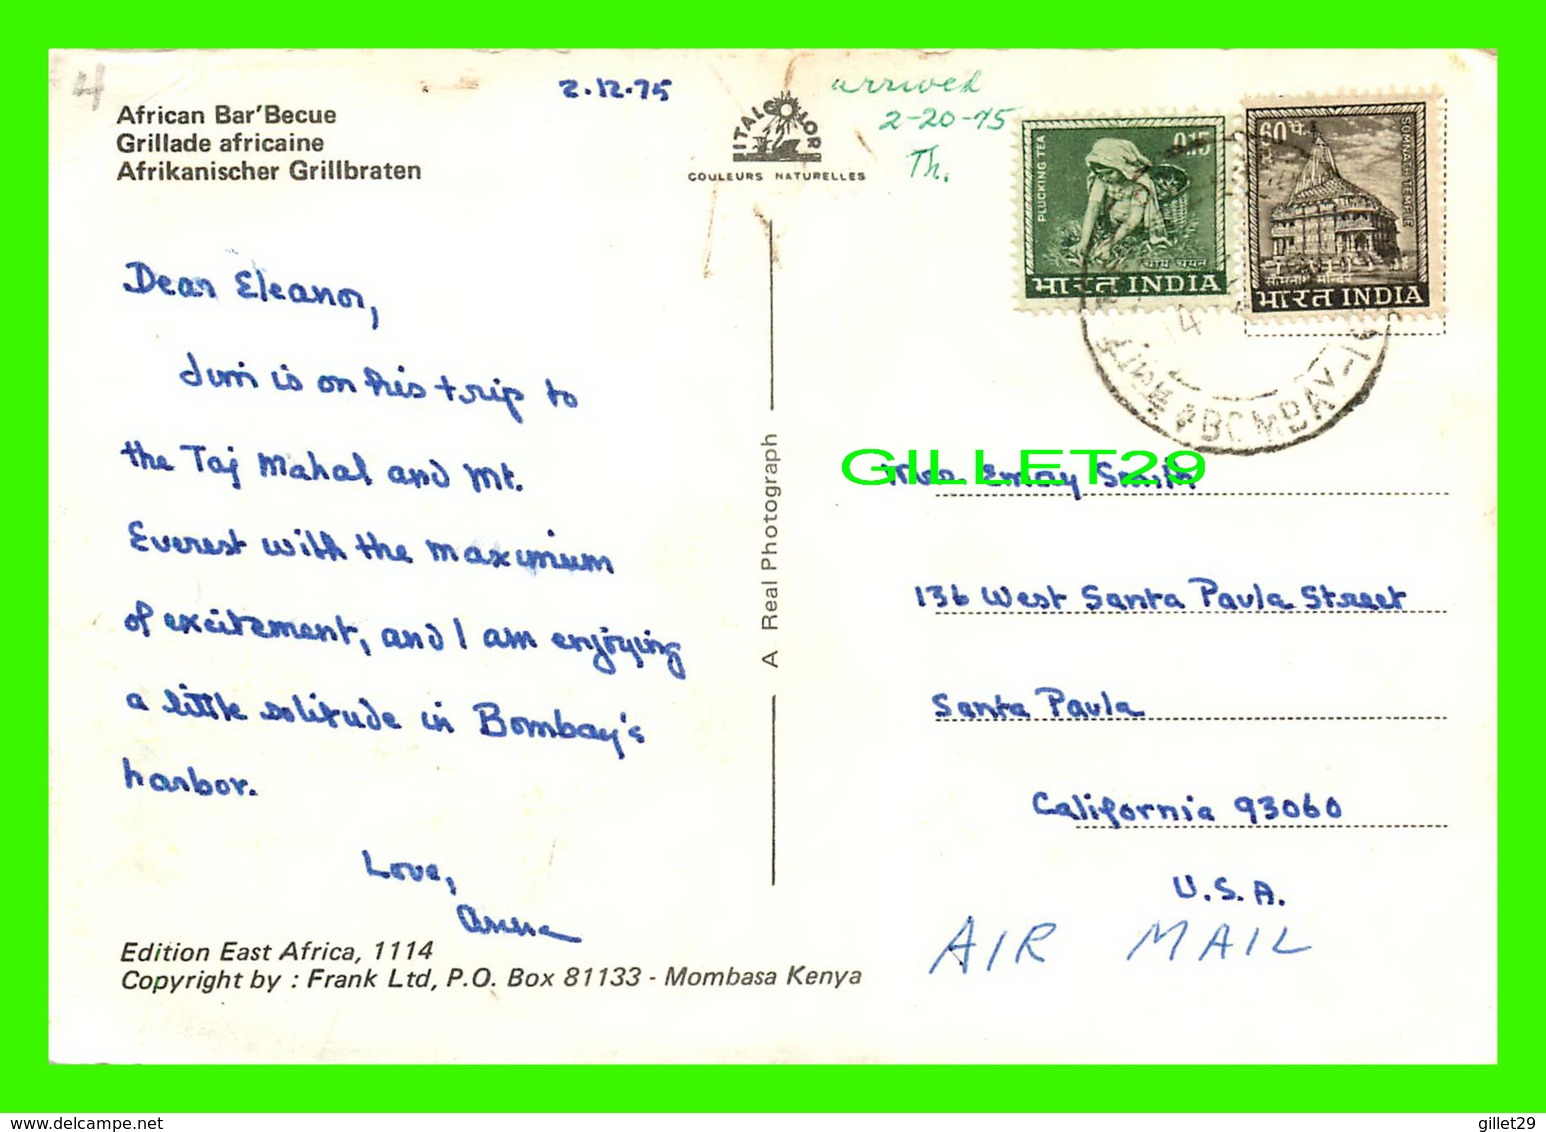 4
2.12.75
arrived
2-20-75
Th.
African Bar'Becue
Grillade africaine
Afrikanischer Grillbraten
ITALCOLOR
COULEURS NATURELLES
PLUCKING TEA
0.15
चाय चयन
भारत INDIA
60 पै.
SOMNATH TEMPLE
सोमनाथ मन्दिर
भारत INDIA
BOMBAY-1
Dear Eleanor,
Jim is on his trip to
the Taj Mahal and Mt.
Everest with the maximum
of excitement, and I am enjoying
a little solitude in Bombay's
harbor.
Love,
A Real Photograph
GILLET29
Smith
136 West Santa Paula Street
Santa Paula
California 93060
U.S.A.
AIR MAIL
Edition East Africa, 1114
Copyright by : Frank Ltd, P.O. Box 81133 - Mombasa Kenya
gillet29